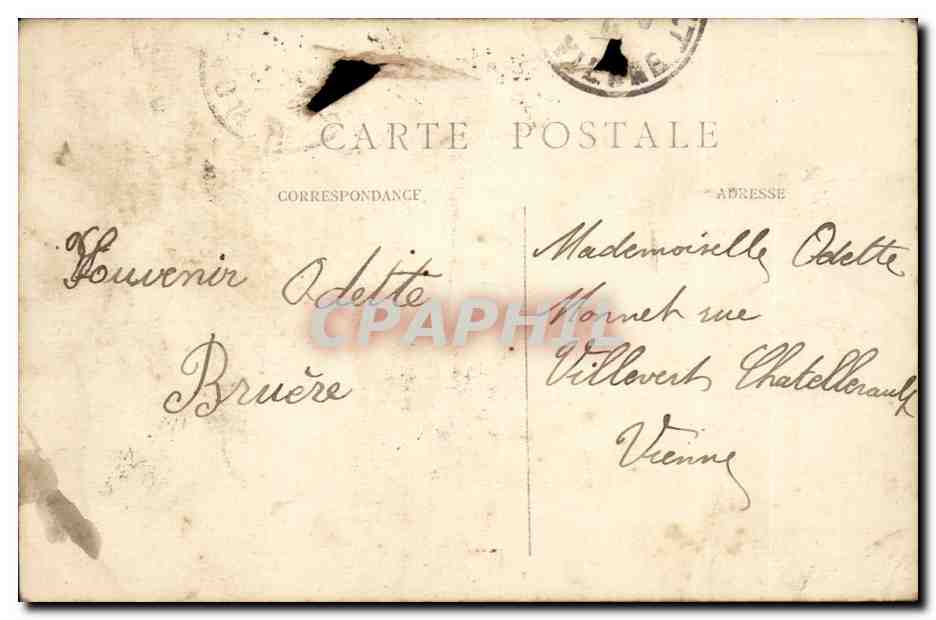 CARTE POSTALE
CORRESPONDANCE
ADRESSE
Souvenir Odette
Bruère
Mademoiselle Odette
Mornet rue
Villevert Chatellerault
Vienne
CPAPHIL